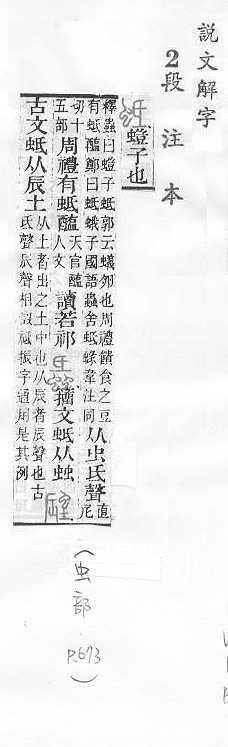 說文解字
2段注本
蚳 螘子也
釋蟲曰螘子蚳郭云蟻卵也周禮饋食之豆
有蚳醢鄭曰蚳蛾子國語蟲舍蚳蝝韋注同 从虫氐聲 直尼
切十五部 周禮有蚳醢 天官醢人文 讀若祁 籒文蚳从䖵
古文蚳从辰土 从土者出之土中也从辰者辰聲也古
氐聲辰聲相似祗振字通用是其例
(虫部 P.673)